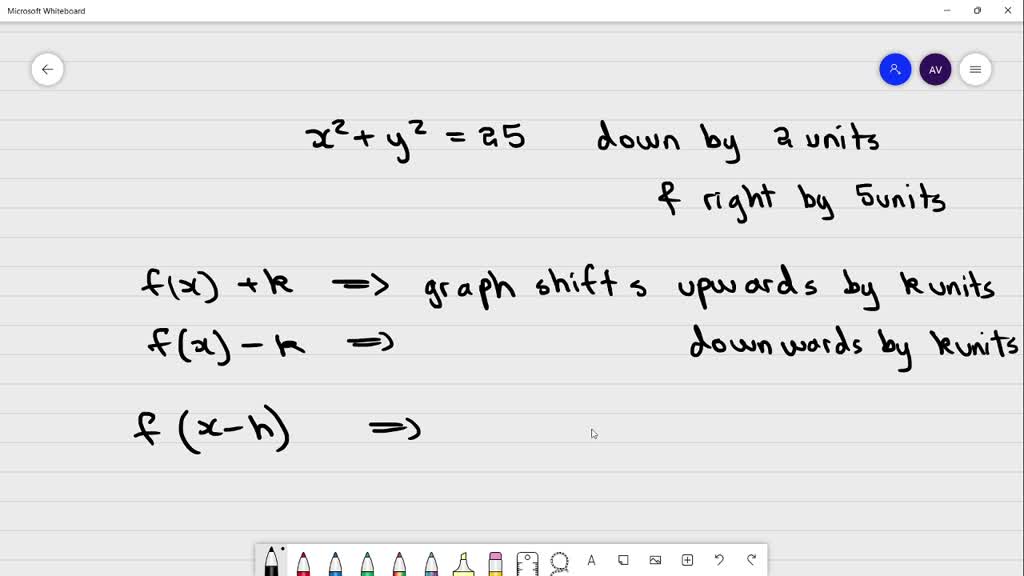 Microsoft Whiteboard
AV
x² + y² = 25 down by 2 units
& right by 5 units
f(x) + k => graph shifts upwards by k units
f(x) - k => downwards by k units
f(x-h) =>
A